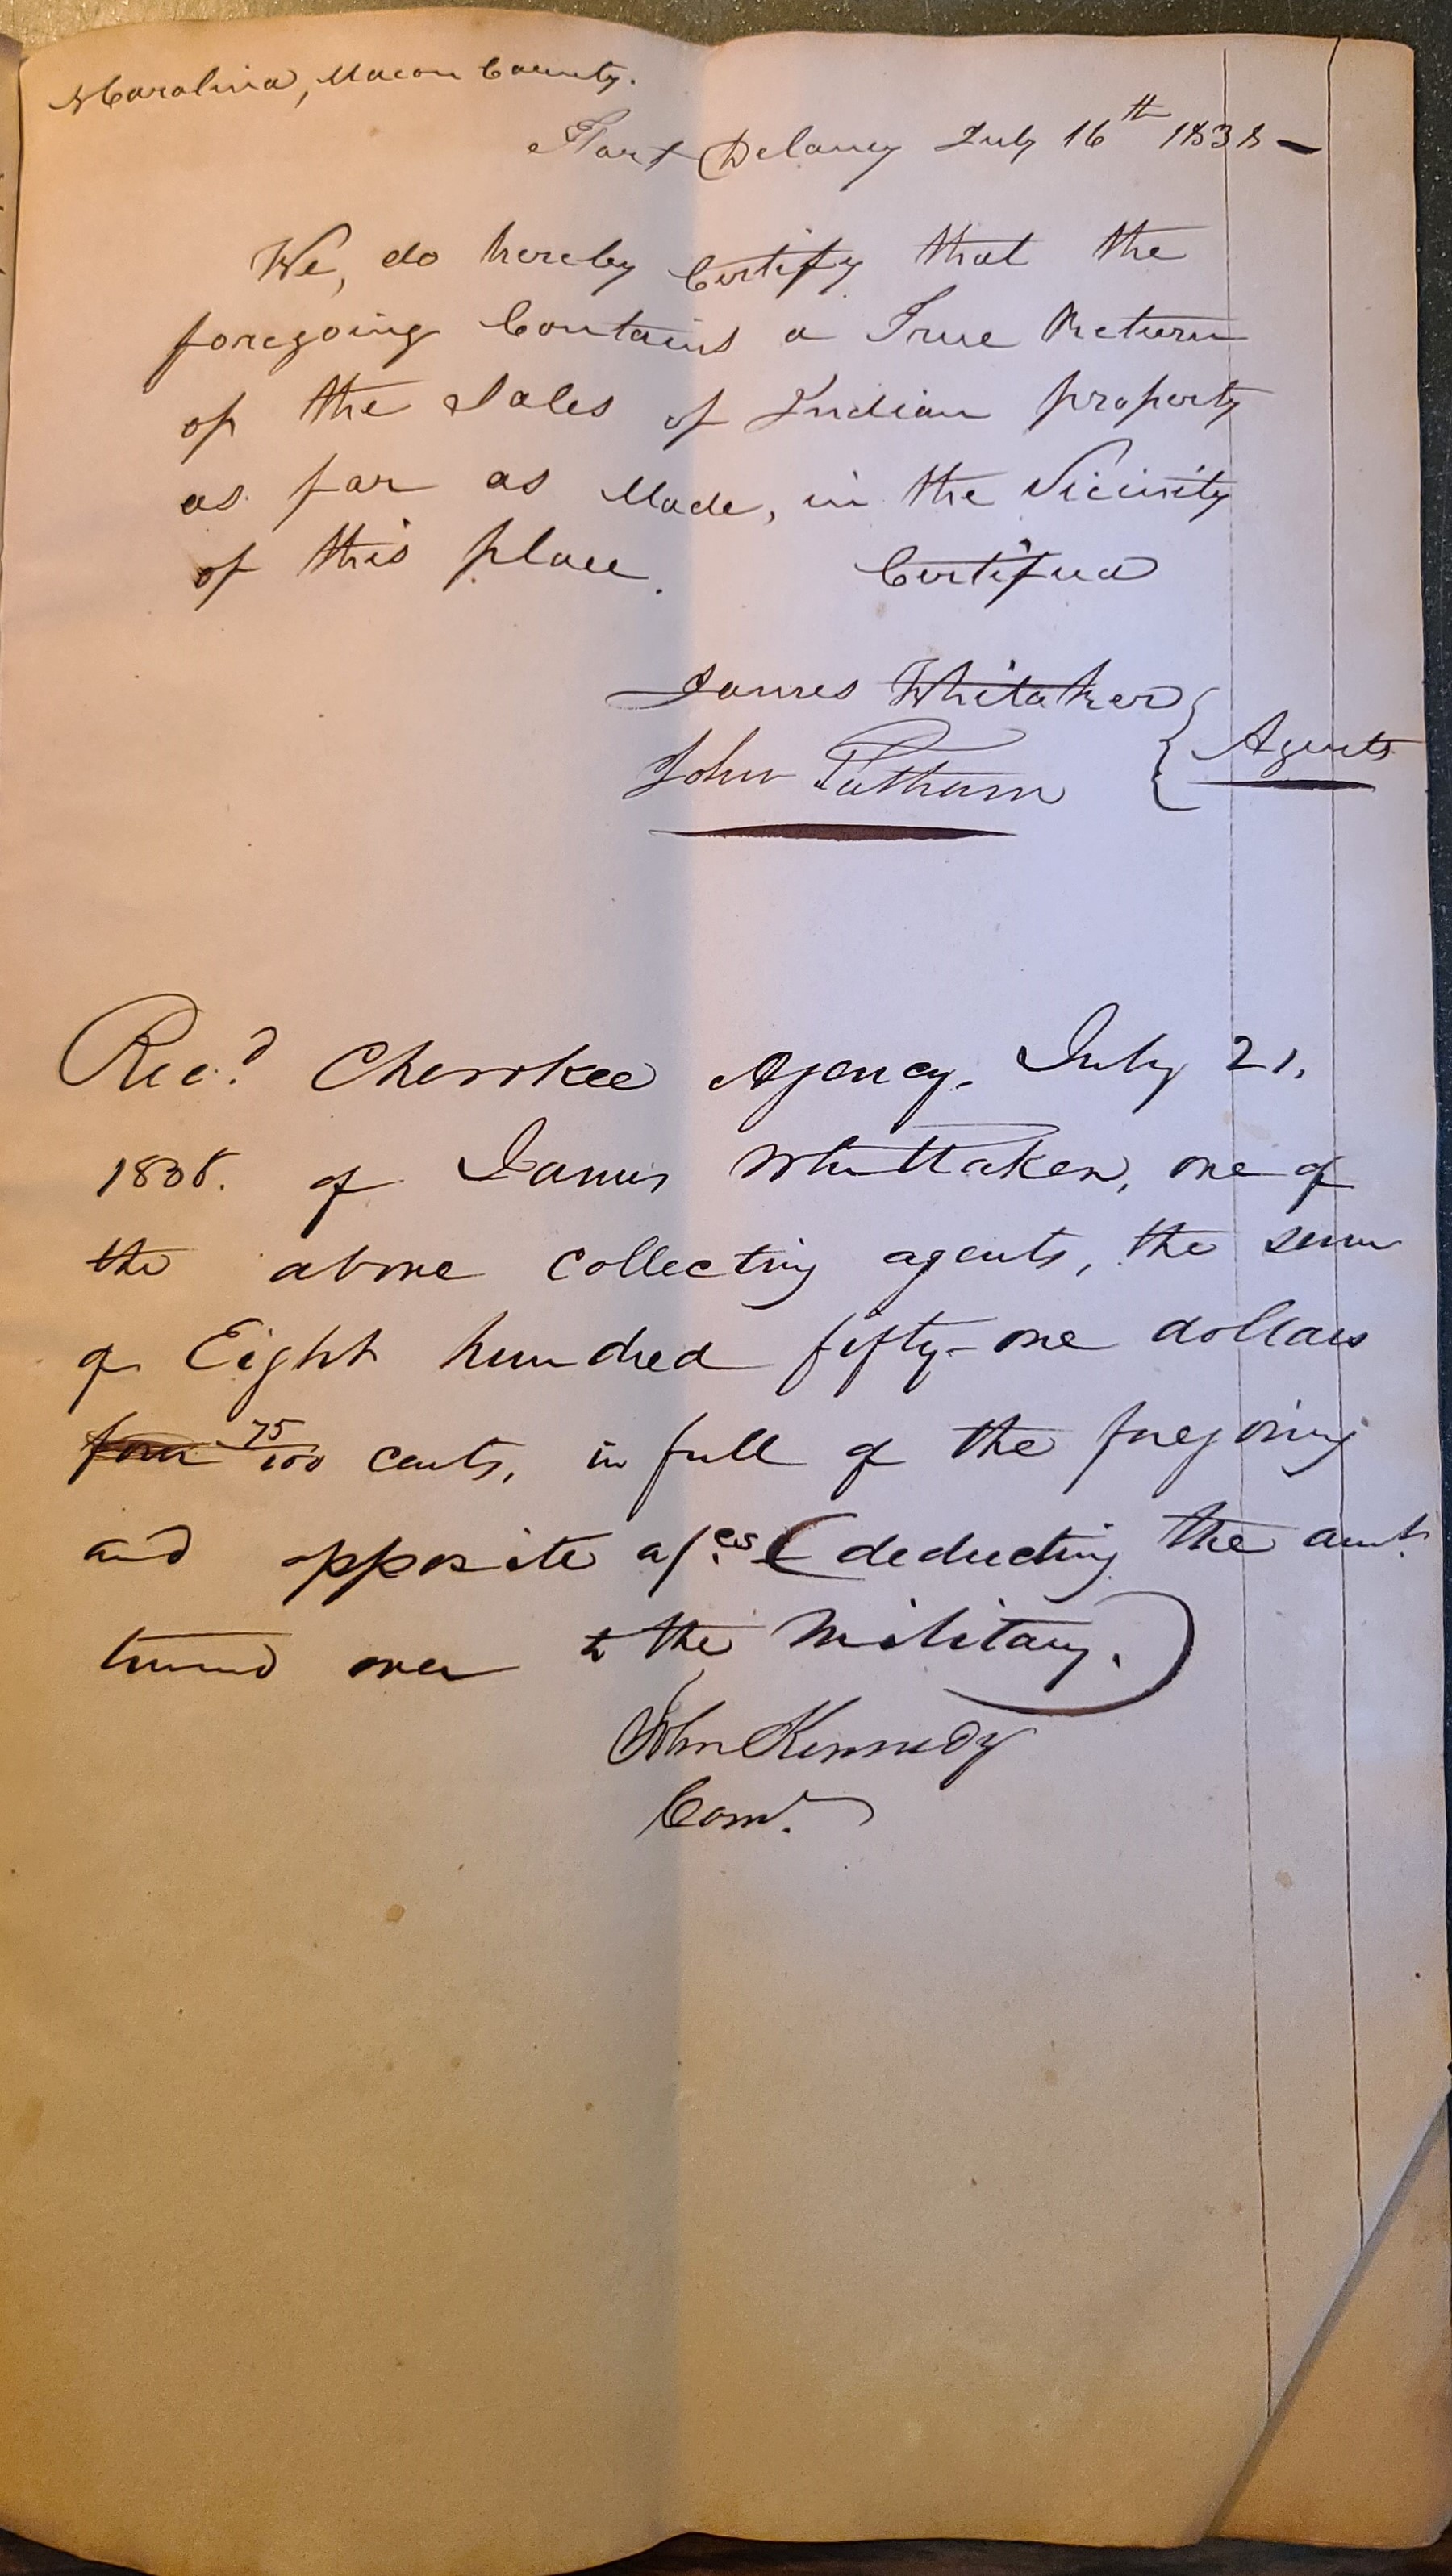 N Carolina, Macon County.
Fort Delaney July 16th 1838 —
We, do hereby Certify that the
foregoing Contains a True Return
of the Sales of Indian property
as far as Made, in the Vicinity
of this place. Certified
James Whitaker
John Tatham } Agents
Rec.d Cherokee Agency, July 21,
1838. of James Whittaker, one of
the above collecting agents, the sum
of Eight hundred fifty-one dollars
75/100 cents, in full of the foregoing
and opposite a/.cs (deducting the amt.
turned over to the Military.)
John Kennedy
Comr.